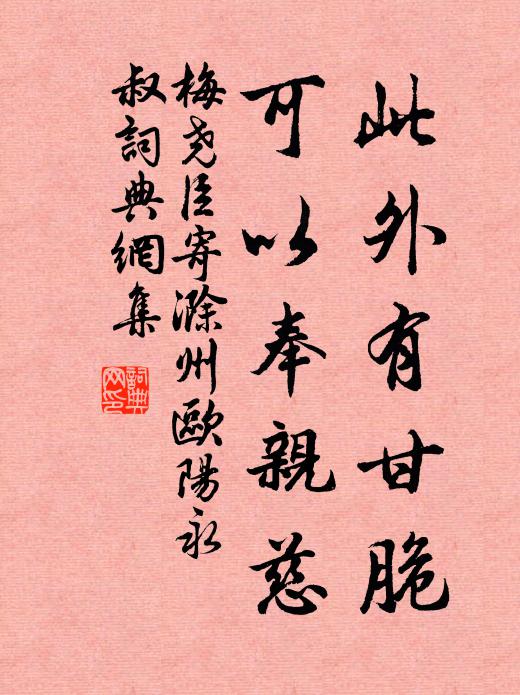 此外有甘脆
可以奉親慈
梅堯臣寄滁州歐陽永
叔詞典網集
詞典
网印